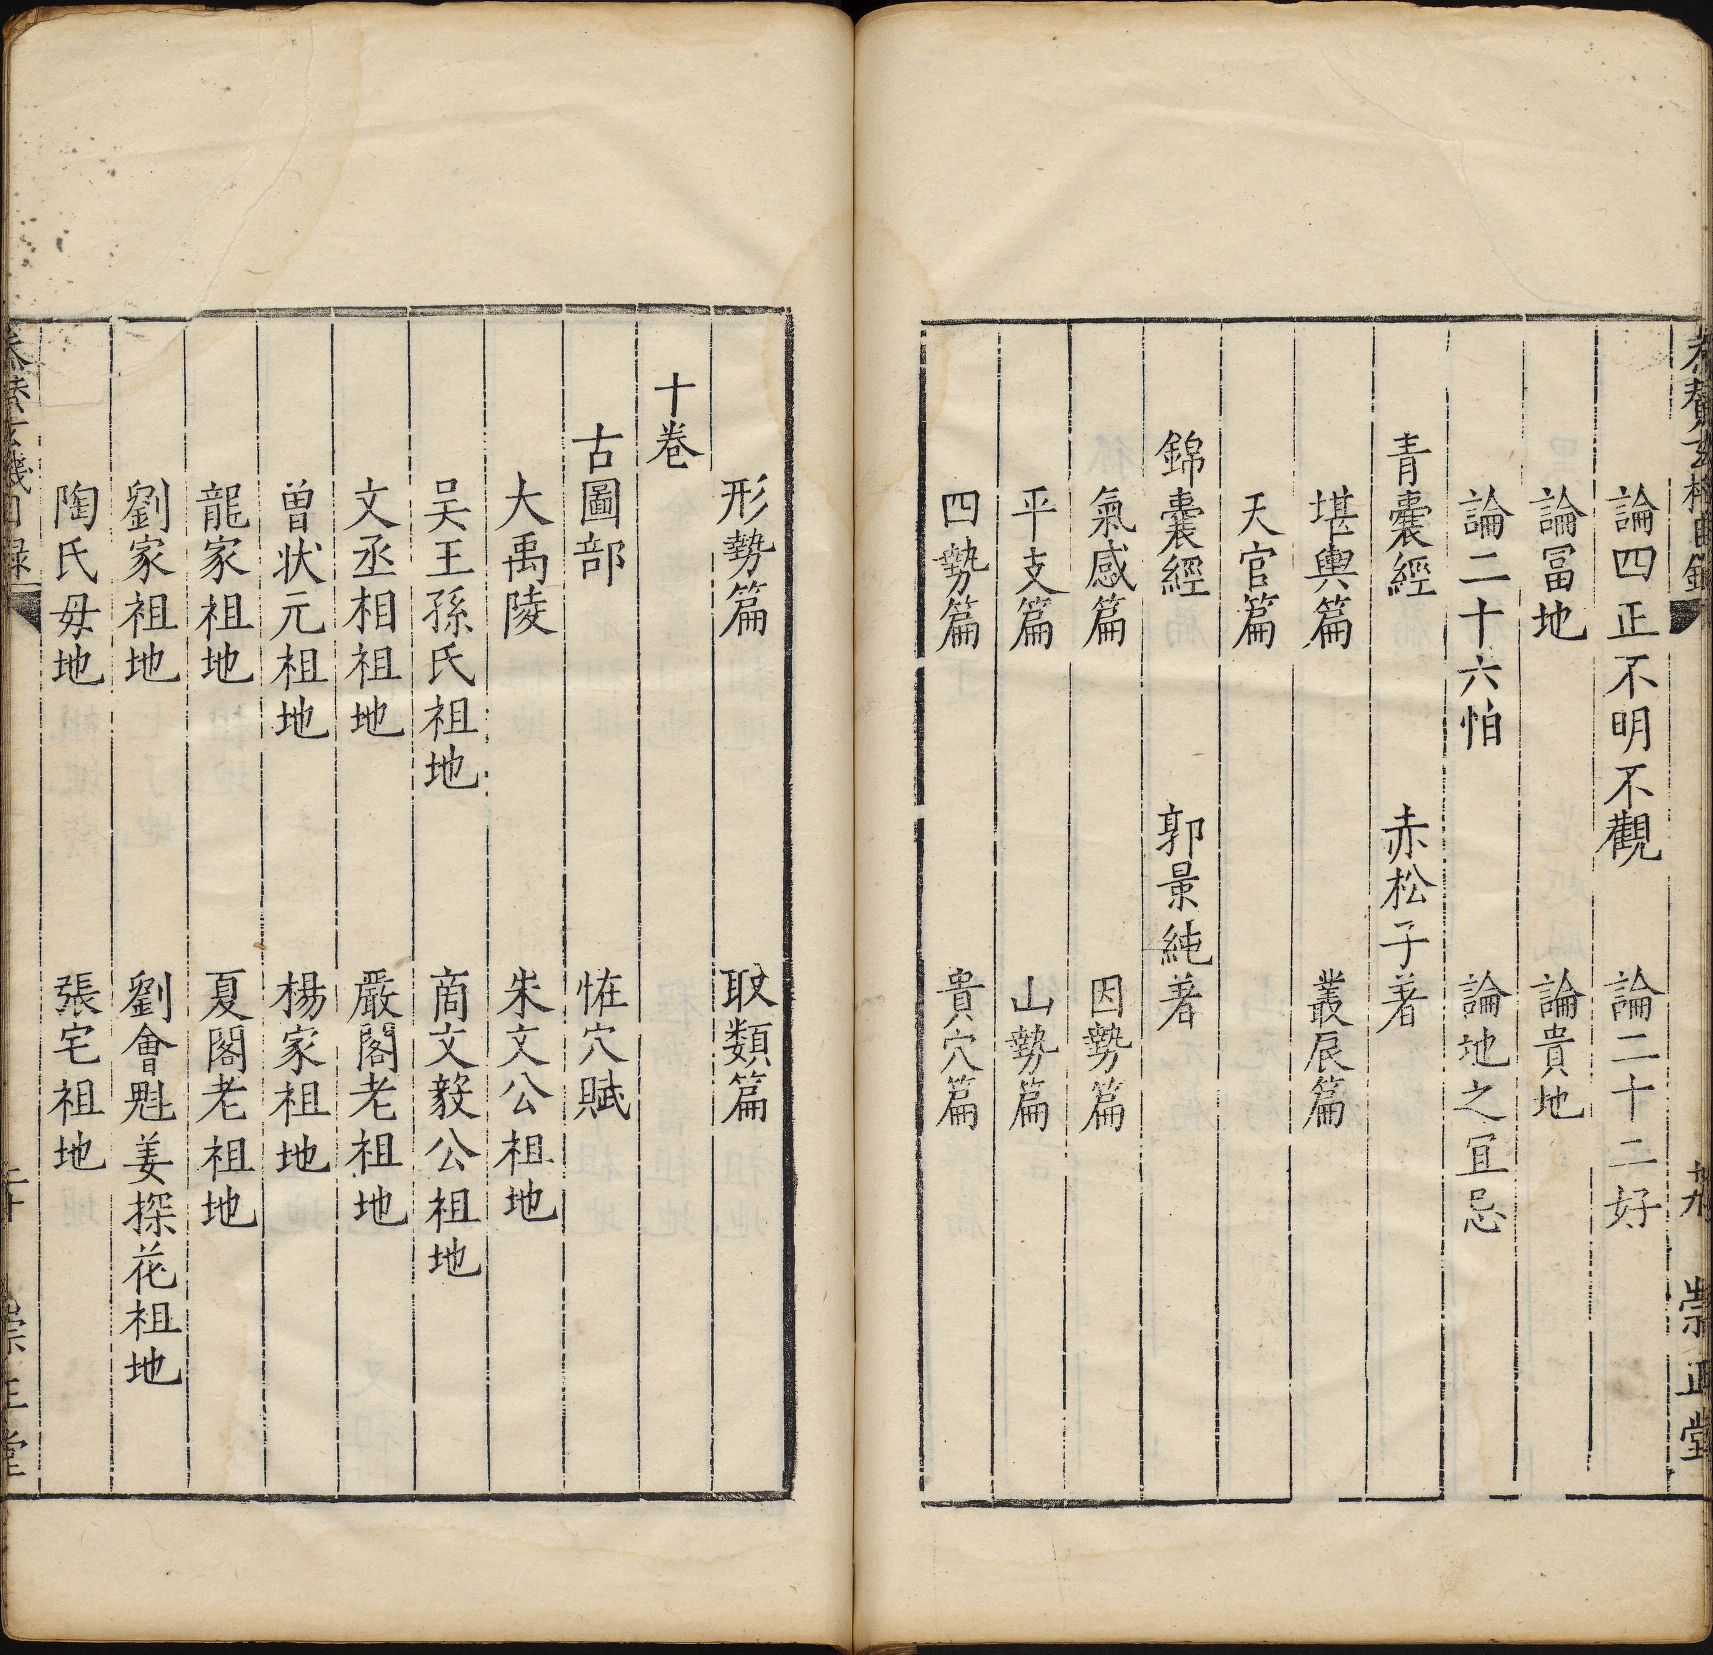 參贊玄機目錄 十九 崇正堂
論四正不明不觀 論二十二好
論冨地 論貴地
論二十六怕 論地之宜忌
青囊經 赤松子著
堪輿篇 叢辰篇
天官篇
錦囊經 郭景純著
氣感篇 因勢篇
平支篇 山勢篇
四勢篇 貴穴篇
形勢篇 取類篇
十卷
古圖部 恠穴賦
大禹陵 朱文公祖地
吴王孫氏祖地 商文毅公祖地
文丞相祖地 嚴閣老祖地
曽状元祖地 楊家祖地
龍家祖地 夏閣老祖地
劉家祖地 劉會魁姜探花祖地
陶氏毋地 張宅祖地
玄機目録 二十 崇正堂